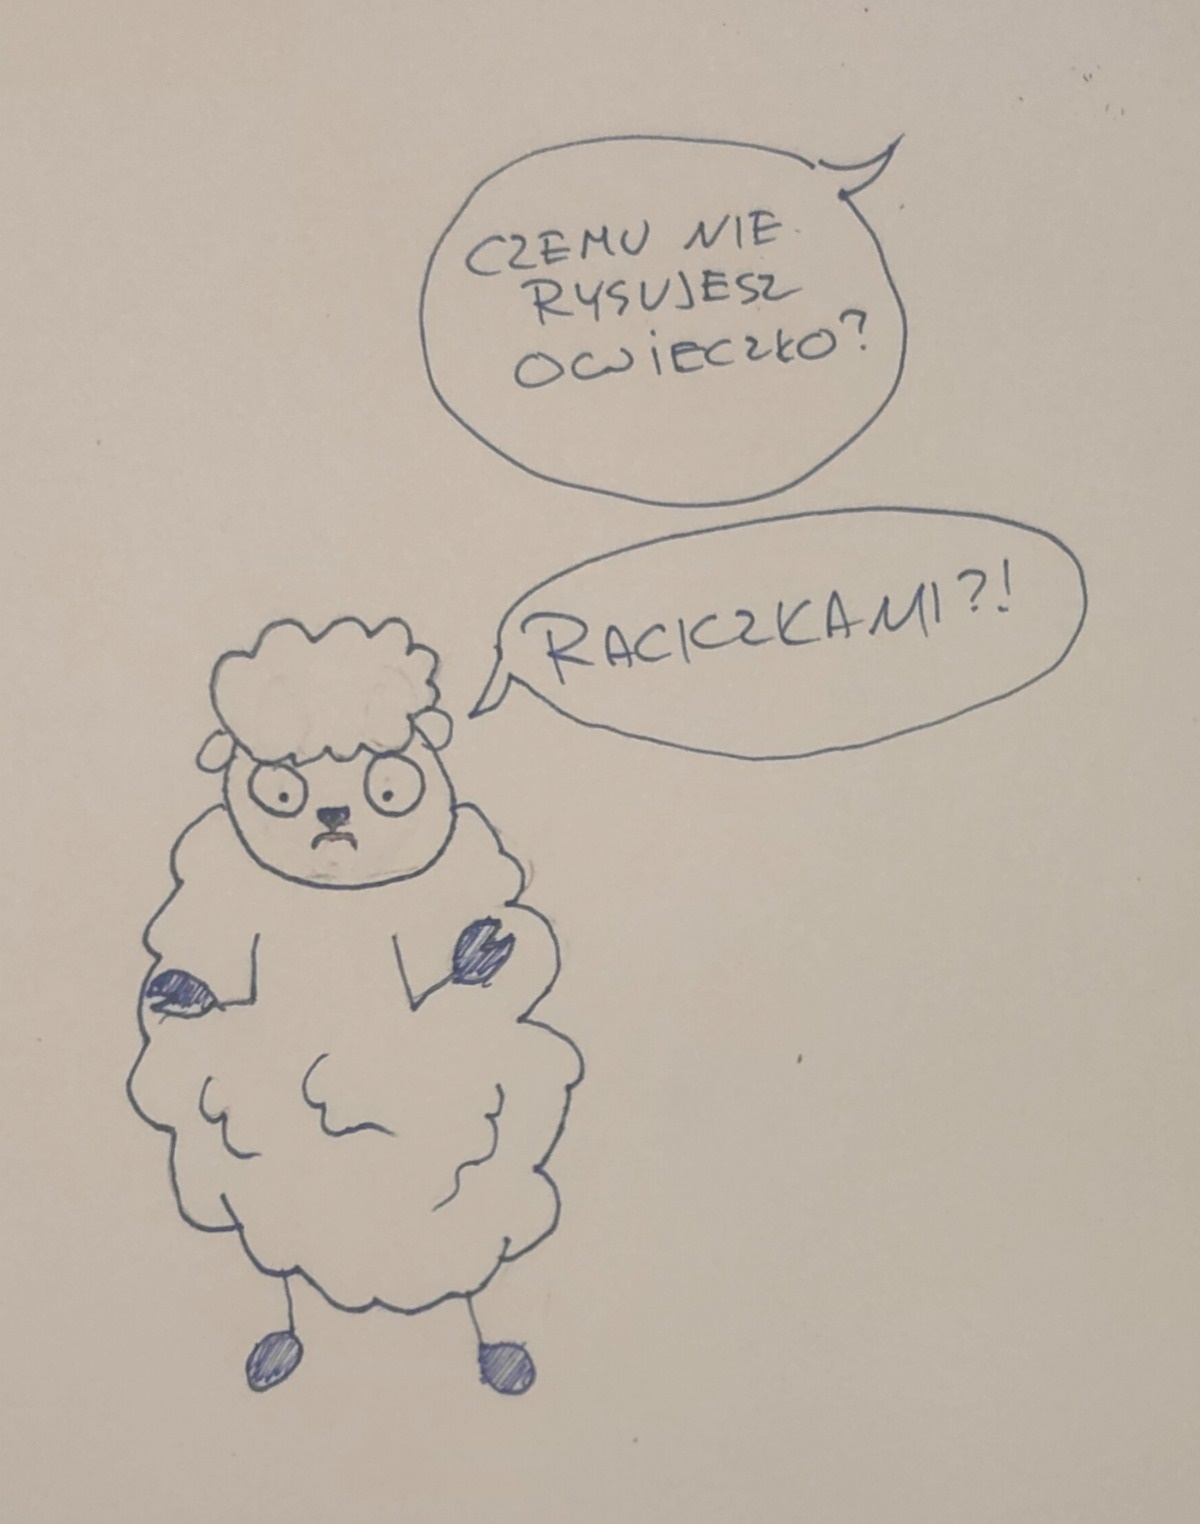 CZEMU NIE
RYSUJESZ
OWIECZKO?
RACICZKAMI?!